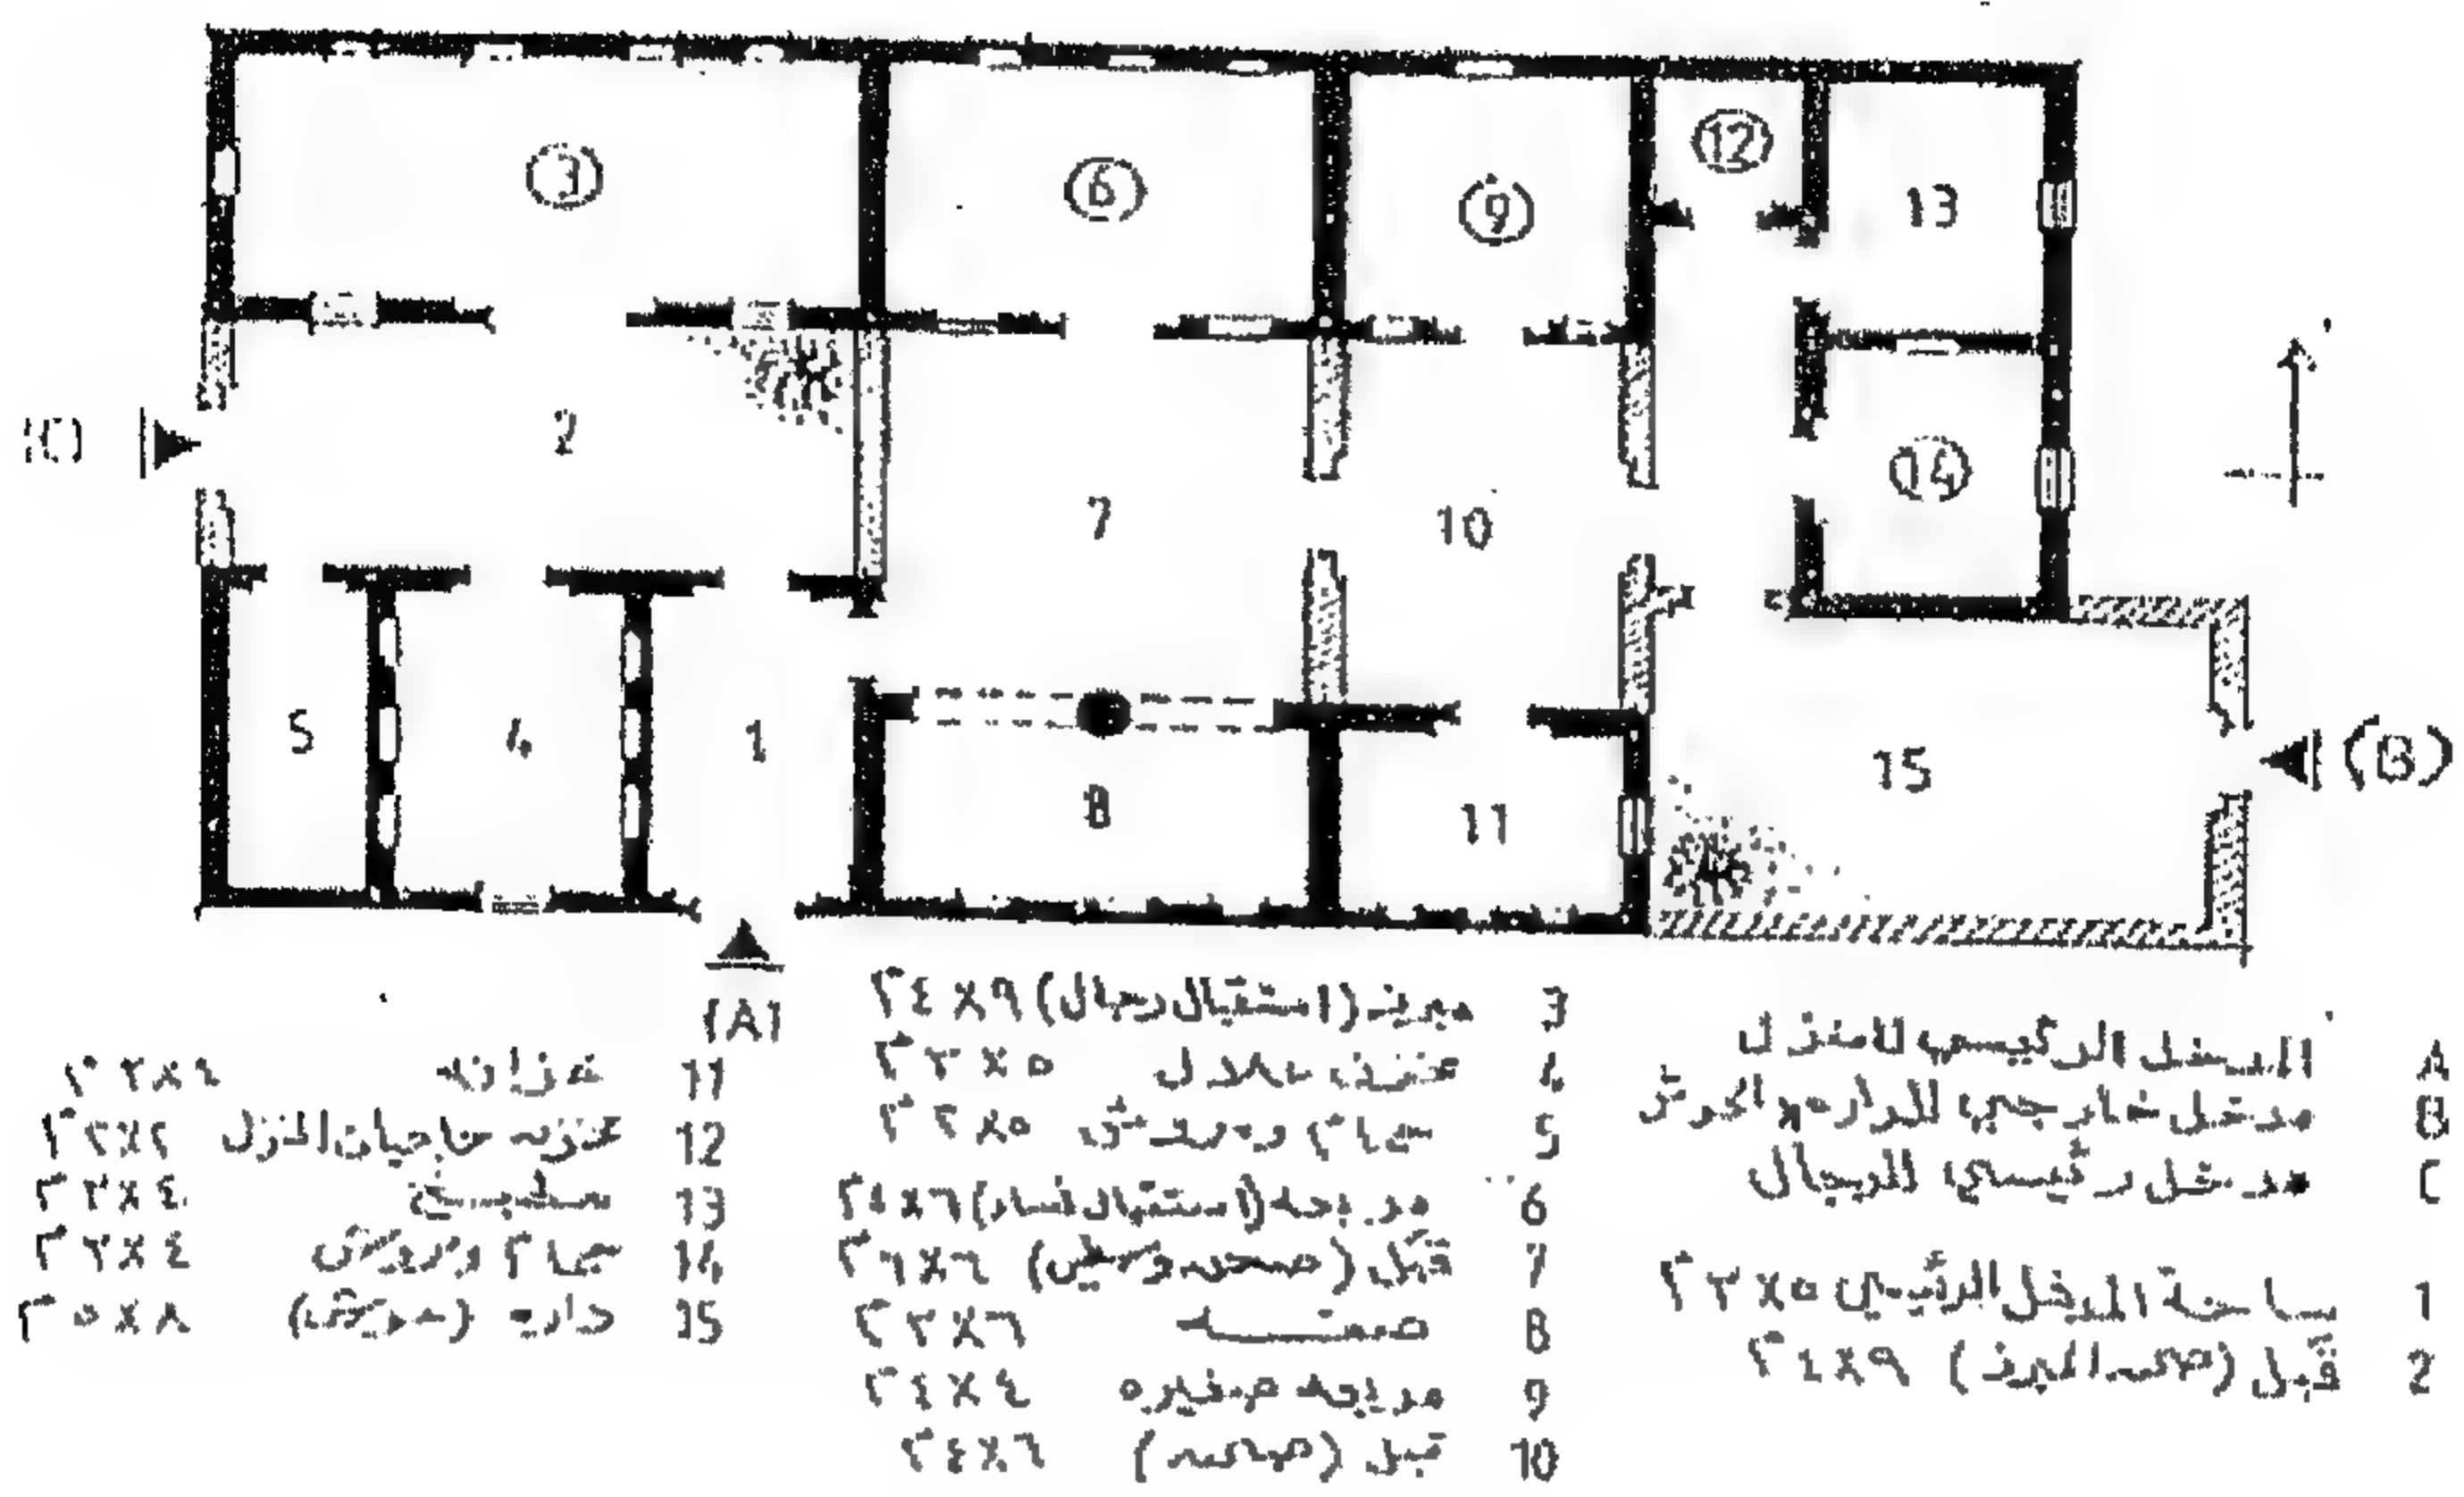 3
6
9
12
13
(C)
2
7
10
14
5
4
1
8
11
15
(B)
(A)
A المدخل الرئيسي للمنزل
B مدخل خارجي للداره والحوش
C مدخل رئيسي للرجال
1 ساحة المدخل الرئيسي ٥×٣م
2 قبل (صحن المبرز) ٩×٤م
3 مبرز (استقبال رجال) ٩×٤م
4 مخزن غلال ٥×٣م
5 حمام ومرحاض ٥×٢م
6 مربعه (استقبال نساء) ٦×٤م
7 قبل (صحن وسطي) ٦×٦م
8 صفه ٦×٣م
9 مربعه صغيره ٤×٤م
10 قبل (صحن) ٦×٤م
11 خزانه ٤×٣م
12 مخزن حاجيات المنزل ٢×٢م
13 مطبخ ٤×٣م
14 حمام ومرحاض ٤×٣م
15 داره (حوش) ٨×٥م